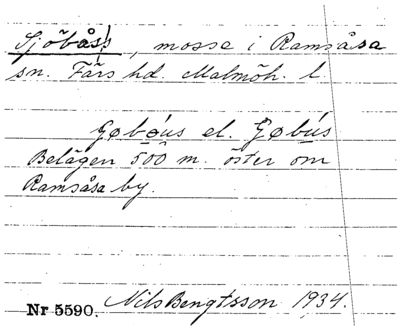 Sjöbåss, mosse i Ramsåsa
sn. Färs hd. Malmöh. l.
Belägen 500 m. öster om
Ramsåsa by.
Nils Bengtsson 1934.
Nr 5590.